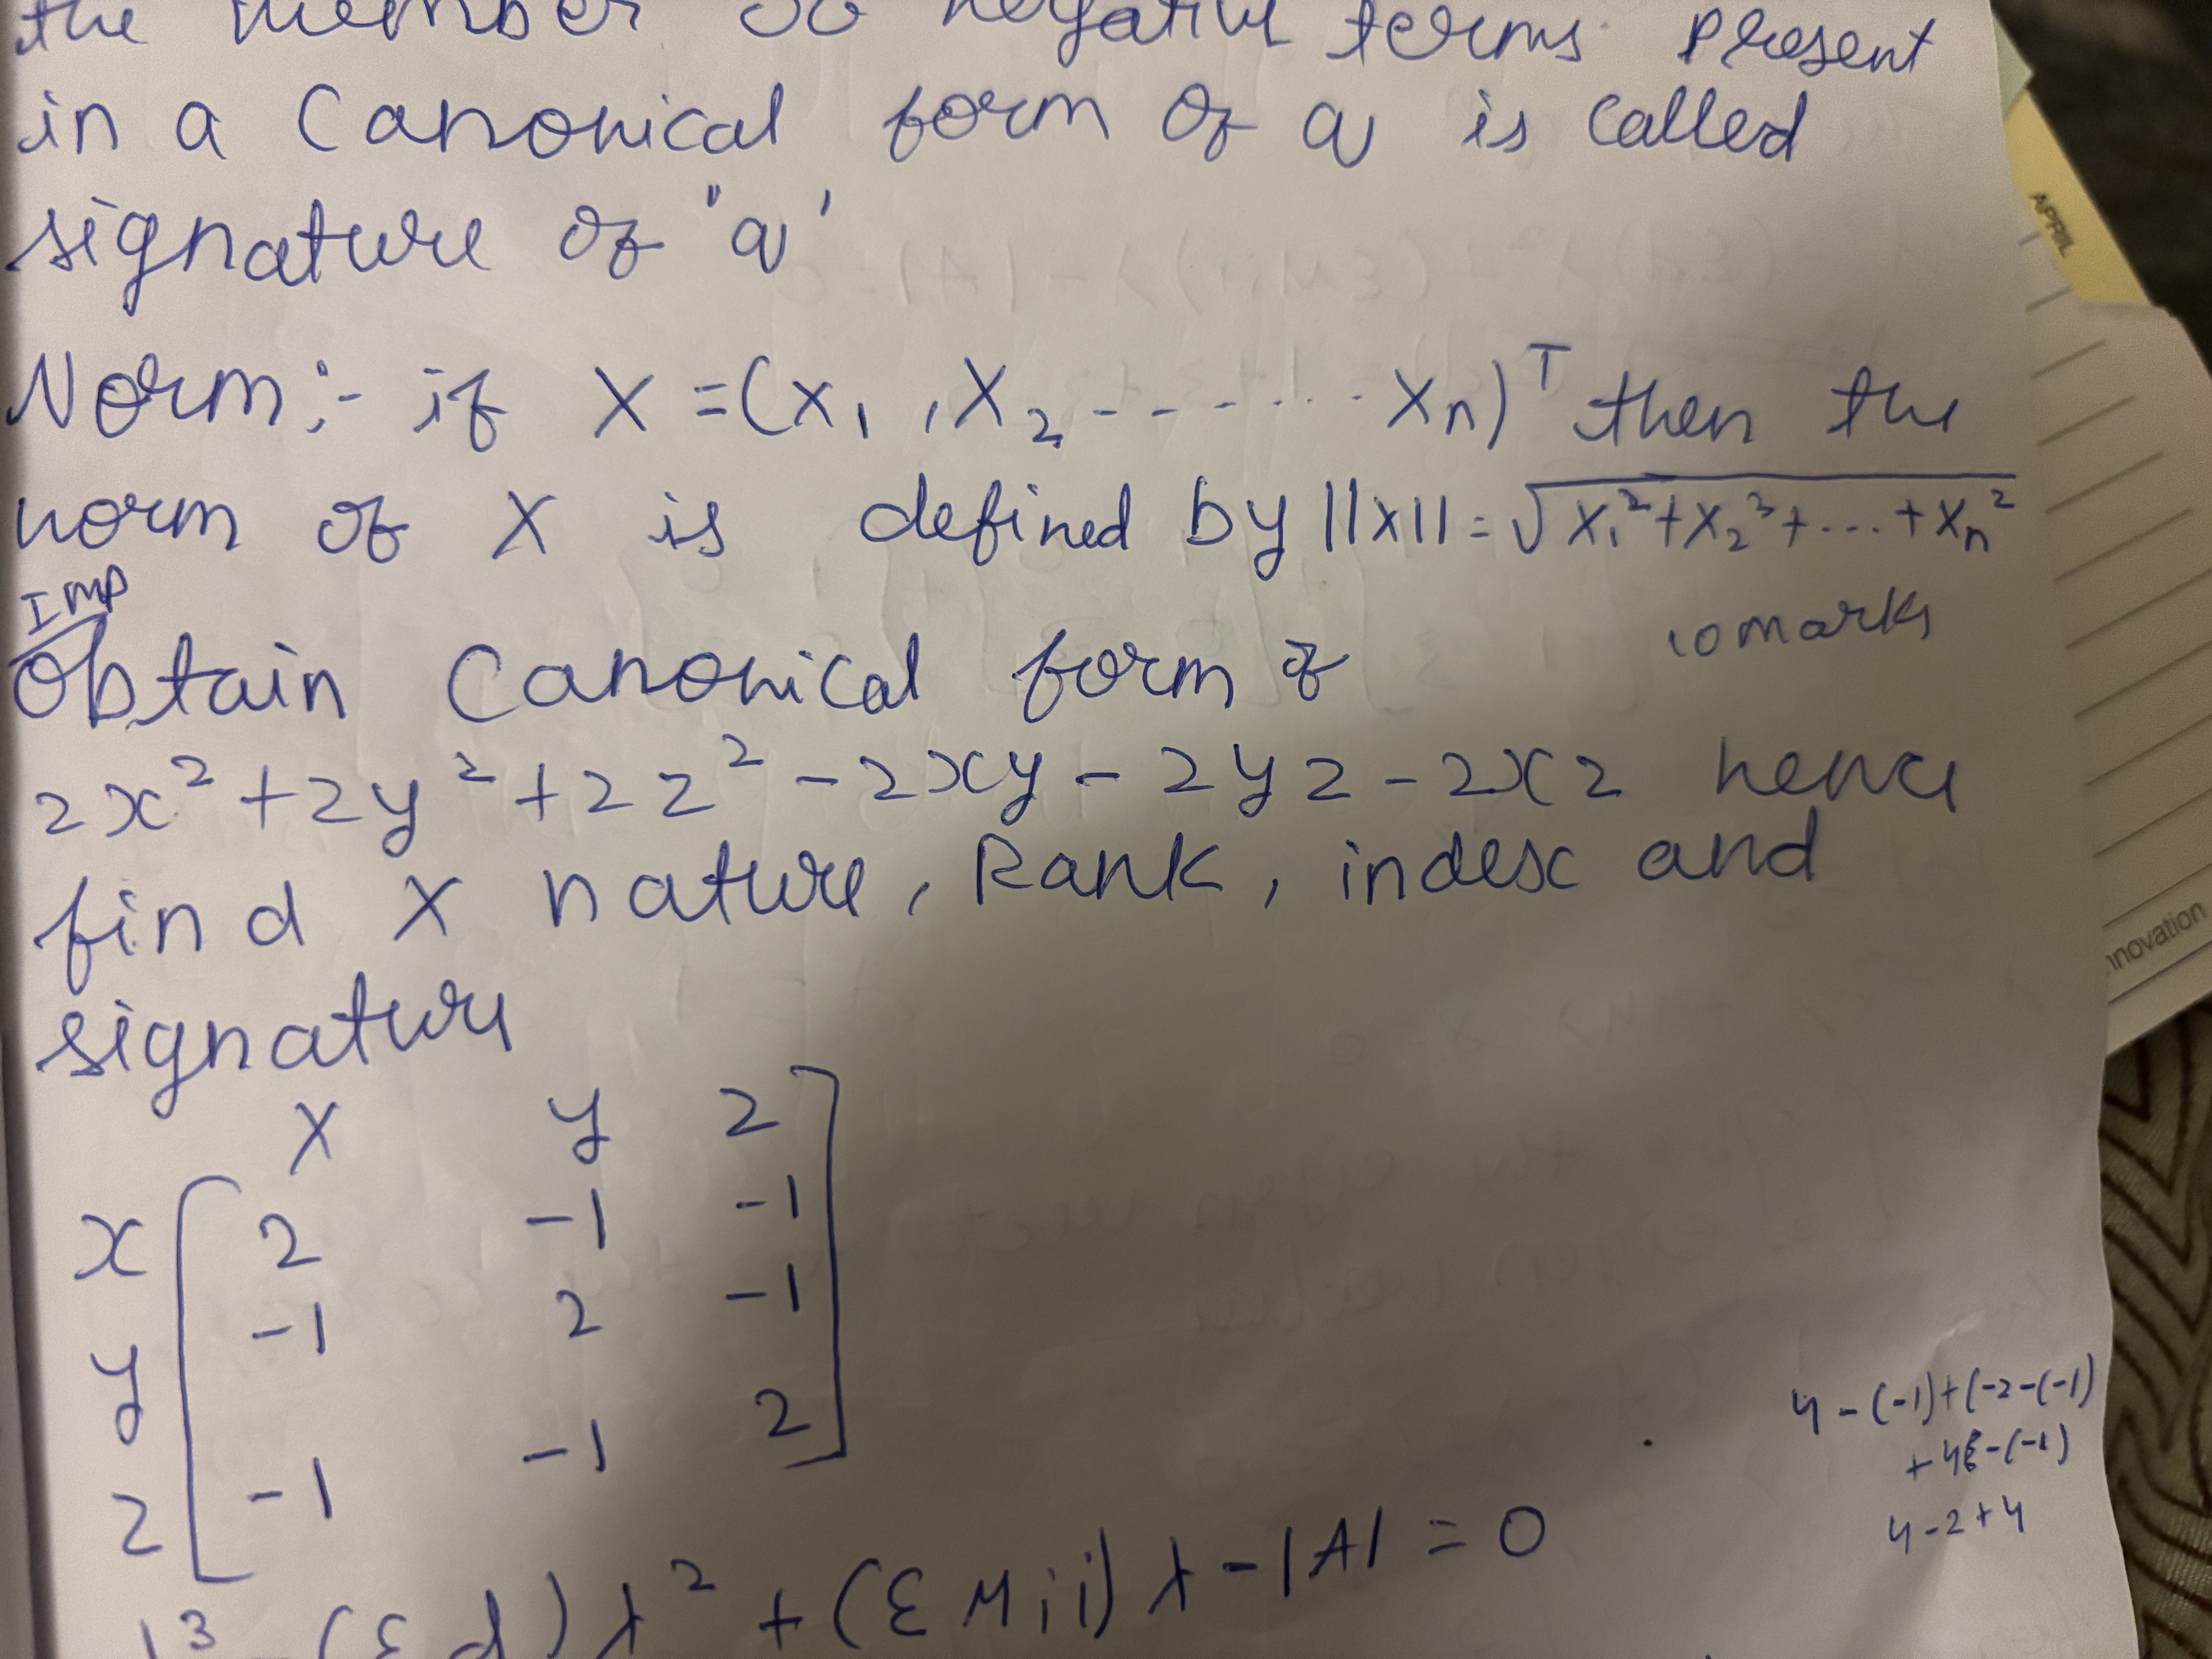 the member so negative terms present
in a canonical form of q is called
signature of "q'
Norm:- if X = (x₁, x₂ ------- xₙ)ᵀ then the
norm of X is defined by ||x|| = √x₁²+x₂²+...+xₙ²
Imp
10 marks
Obtain Canonical form of
2x² + 2y² + 2z² - 2xy - 2yz - 2xz hence
find X nature, Rank, index and
signature
x y z
x [ 2 -1 -1
y -1 2 -1
z -1 -1 2 ]
4-(-1)+(-2-(-1)
4-2+4
λ³ - (Σd) λ² + (ΣMii) λ - |A| = 0
APRIL
nnovation